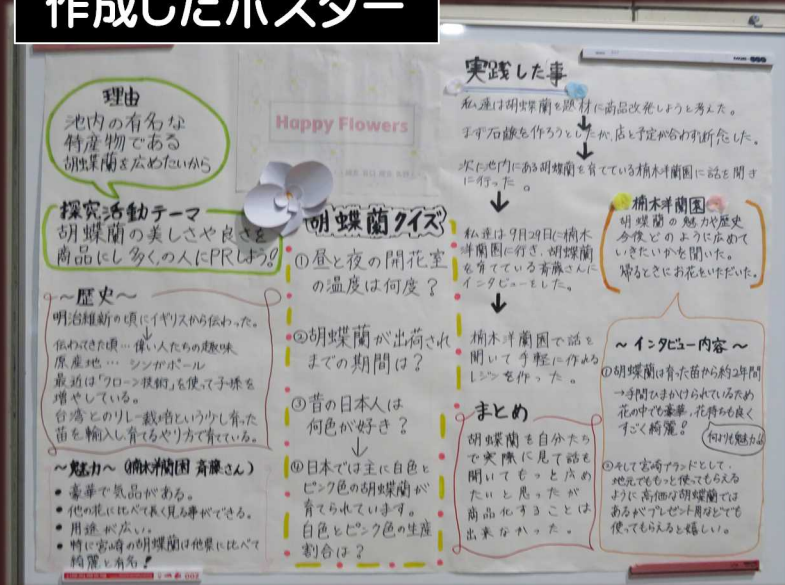 作成したポスター
理由
池内の有名な
特産物である
胡蝶蘭を広めたいから
探究活動テーマ
胡蝶蘭の美しさや良さを
商品にし多くの人にPRしよう!
〜歴史〜
明治維新の頃にイギリスから伝わった。
↓
伝わってきた頃…偉い人たちの趣味
原産地…シンガポール
最近は「クローン技術」を使って子株を
増やしている。
台湾とのリレー栽培という少し育った
苗を輸入し育てるやり方で育ている。
〜魅力〜(楠木洋蘭園 斉藤さん)
• 豪華で気品がある。
• 他の花に比べて長く見る事ができる。
• 用途が広い。
• 特に宮崎の胡蝶蘭は他県に比べて
綺麗と有名!
Happy Flowers
胡蝶蘭クイズ
①昼と夜の開花室
の温度は何度?
②胡蝶蘭が出荷され
までの期間は?
③昔の日本人は
何色が好き?
↓
④日本では主に白色と
ピンク色の胡蝶蘭が
育てられています。
白色とピンク色の生産
割合は?
実践した事
私達は胡蝶蘭を題材に商品改発しようと考えた。
↓
まず石鹸を作ろうとしたが、店と予定が合わず断念した。
↓
次に池内にある胡蝶蘭を育てている楠木洋蘭園に話を聞き
に行った。
↓
私達は9月29日に楠木
洋蘭園に行き、胡蝶蘭
を育てている斉藤さんに
インタビューをした。
↓
楠木洋蘭園で話を
聞いて手軽に作れる
レジンを作った。
まとめ
胡蝶蘭を自分たち
で実際に見て話を
聞いてもっと広め
たいと思ったが
商品化することは
出来なかった。
楠木洋蘭園
胡蝶蘭の魅力や歴史
今後どのように広めて
いきたいかを聞いた。
帰るときにお花をいただいた。
〜インタビュー内容〜
①胡蝶蘭は育った苗から約2年間
→手間ひまかけられているため
花の中でも豪華、花持ちも良く
すごく綺麗!
何よりも魅力!!
②そして宮崎ブランドとして、
地元でももっと使ってもらえる
ように高価な胡蝶蘭では
あるがプレゼント用などでも
使ってもらえると嬉しい。